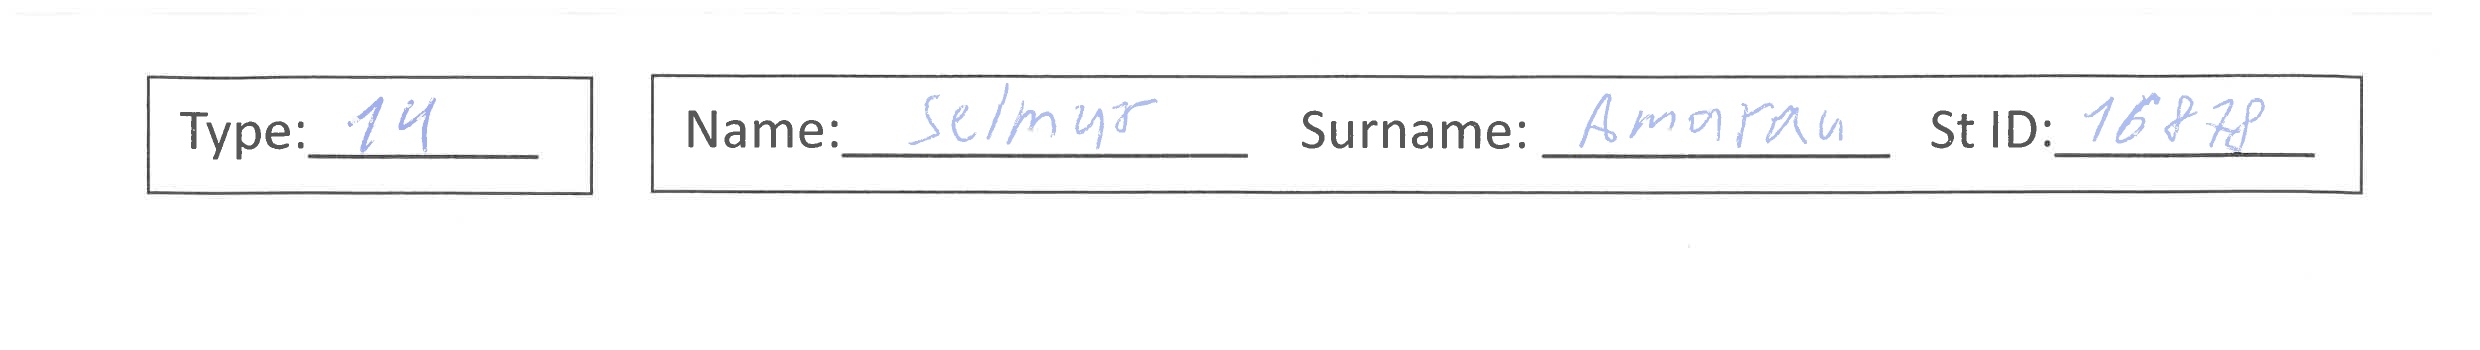 Type: 14 Name: Selmyr Surname: Amarau St ID: 16878